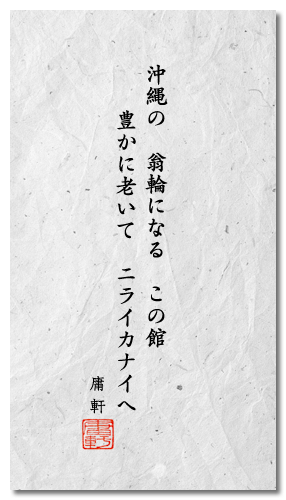 沖縄の　翁輪になる　この館
豊かに老いて　ニライカナイへ
庸軒
庸軒